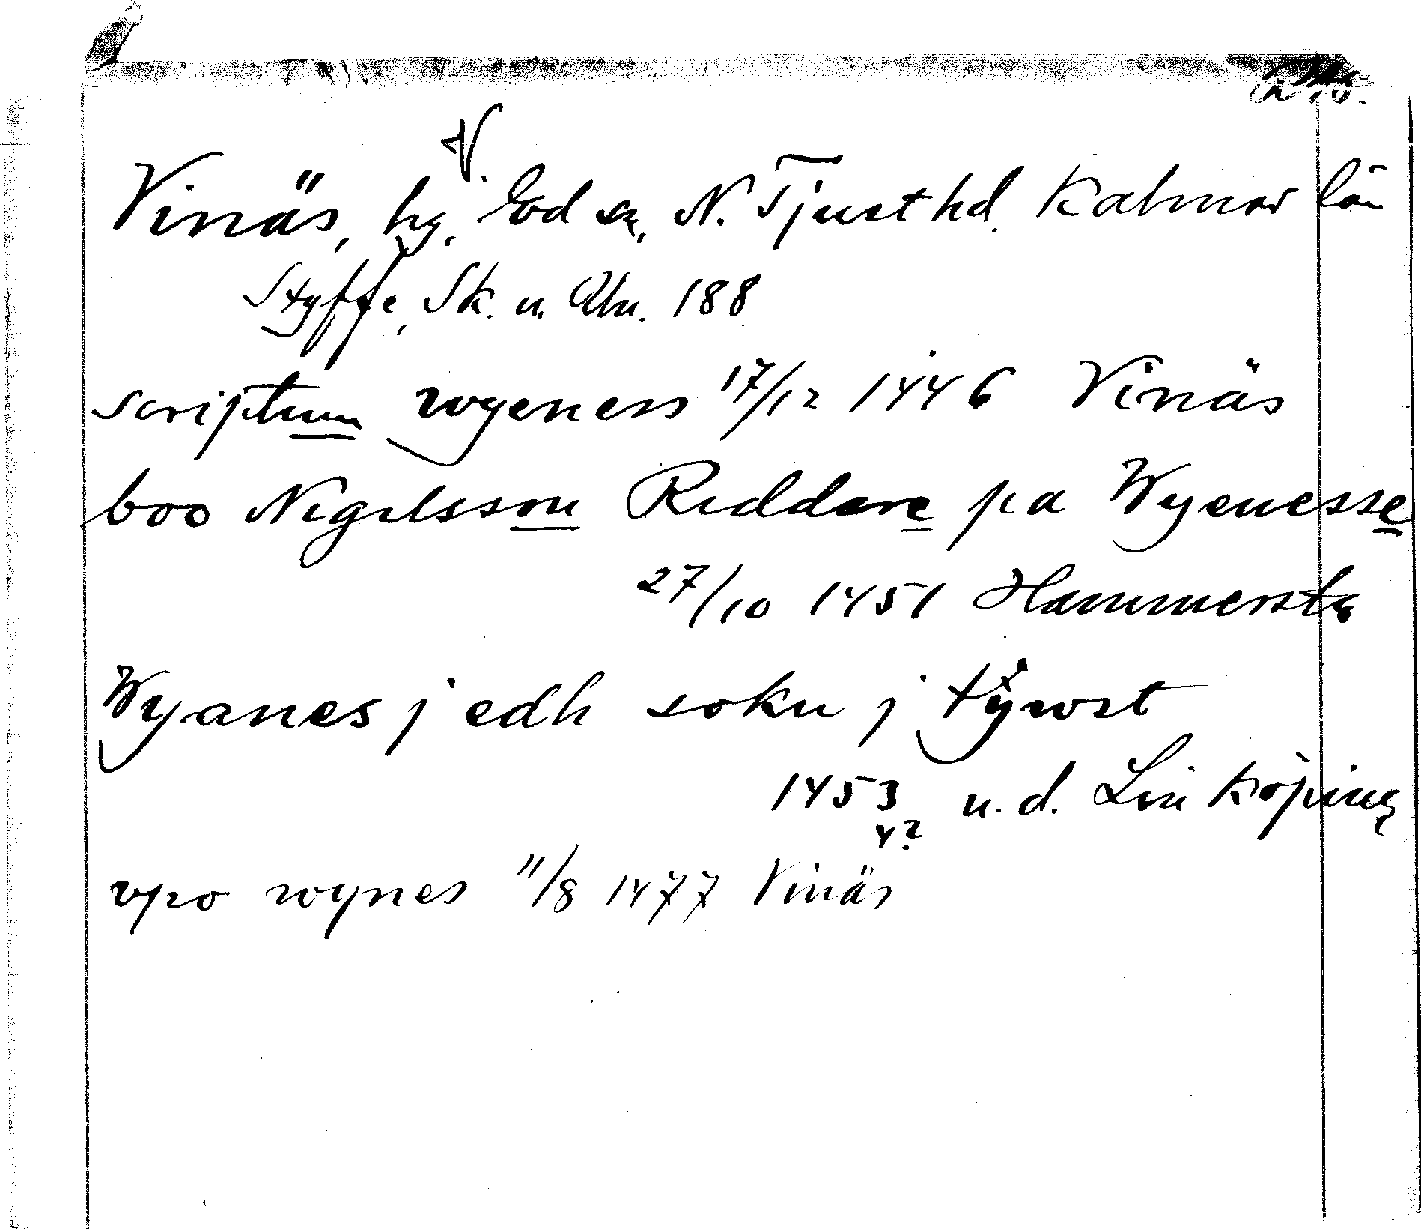 V.
Vinäs, hg, Ed sn, N. Tjust hd. Kalmar län
Styffe, Sk. u. Un. 188
scriptum wyeness 17/12 1446 Vinäs
boo Nigelsson Riddare pa Wyenesse
27/10 1451 Hammersta
Wyanes j edh sokn j tywst
1453 u. d. Linköping
4?
vpo wynes 11/8 1477 Vinäs